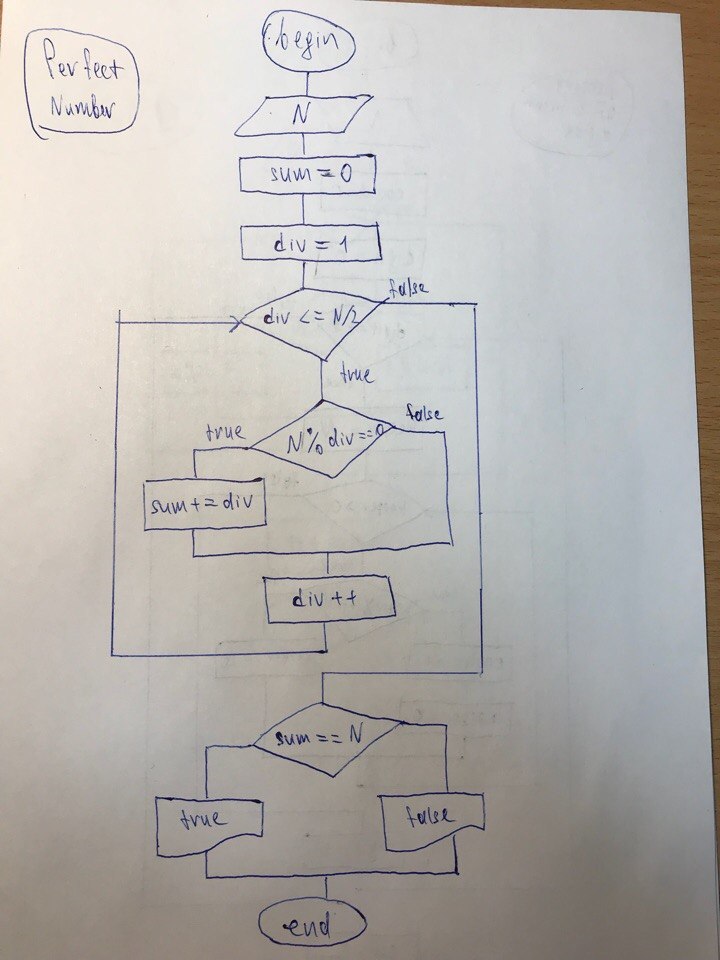 Perfect
Number
begin
N
sum = 0
div = 1
div <= N/2
false
true
N % div == 0
true
false
sum += div
div ++
sum == N
true
false
end